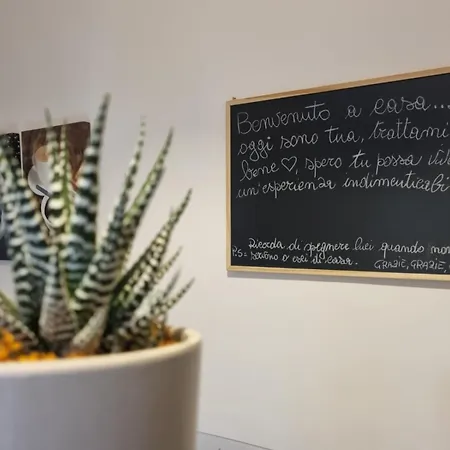 Benvenuto a casa...
oggi sono tua, trattami
bene ♡, spero tu possa
un'esperienza indimenticabi
Ricorda di spegnere luci quando non
P.S=
o esci di casa.
GRAZIE, GRAZIE,